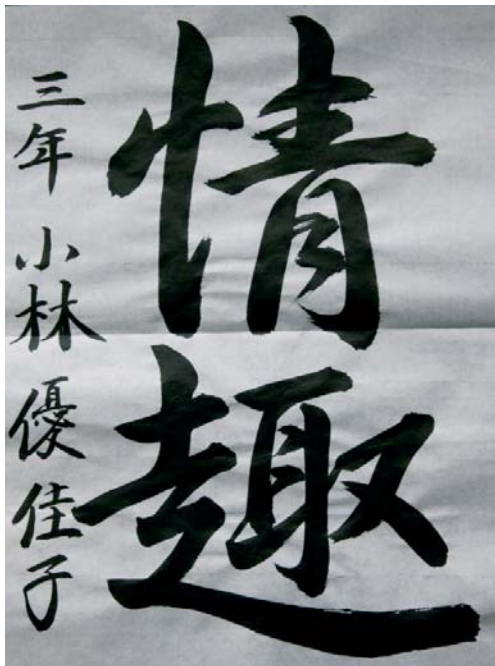 情趣
三年 小林優佳子